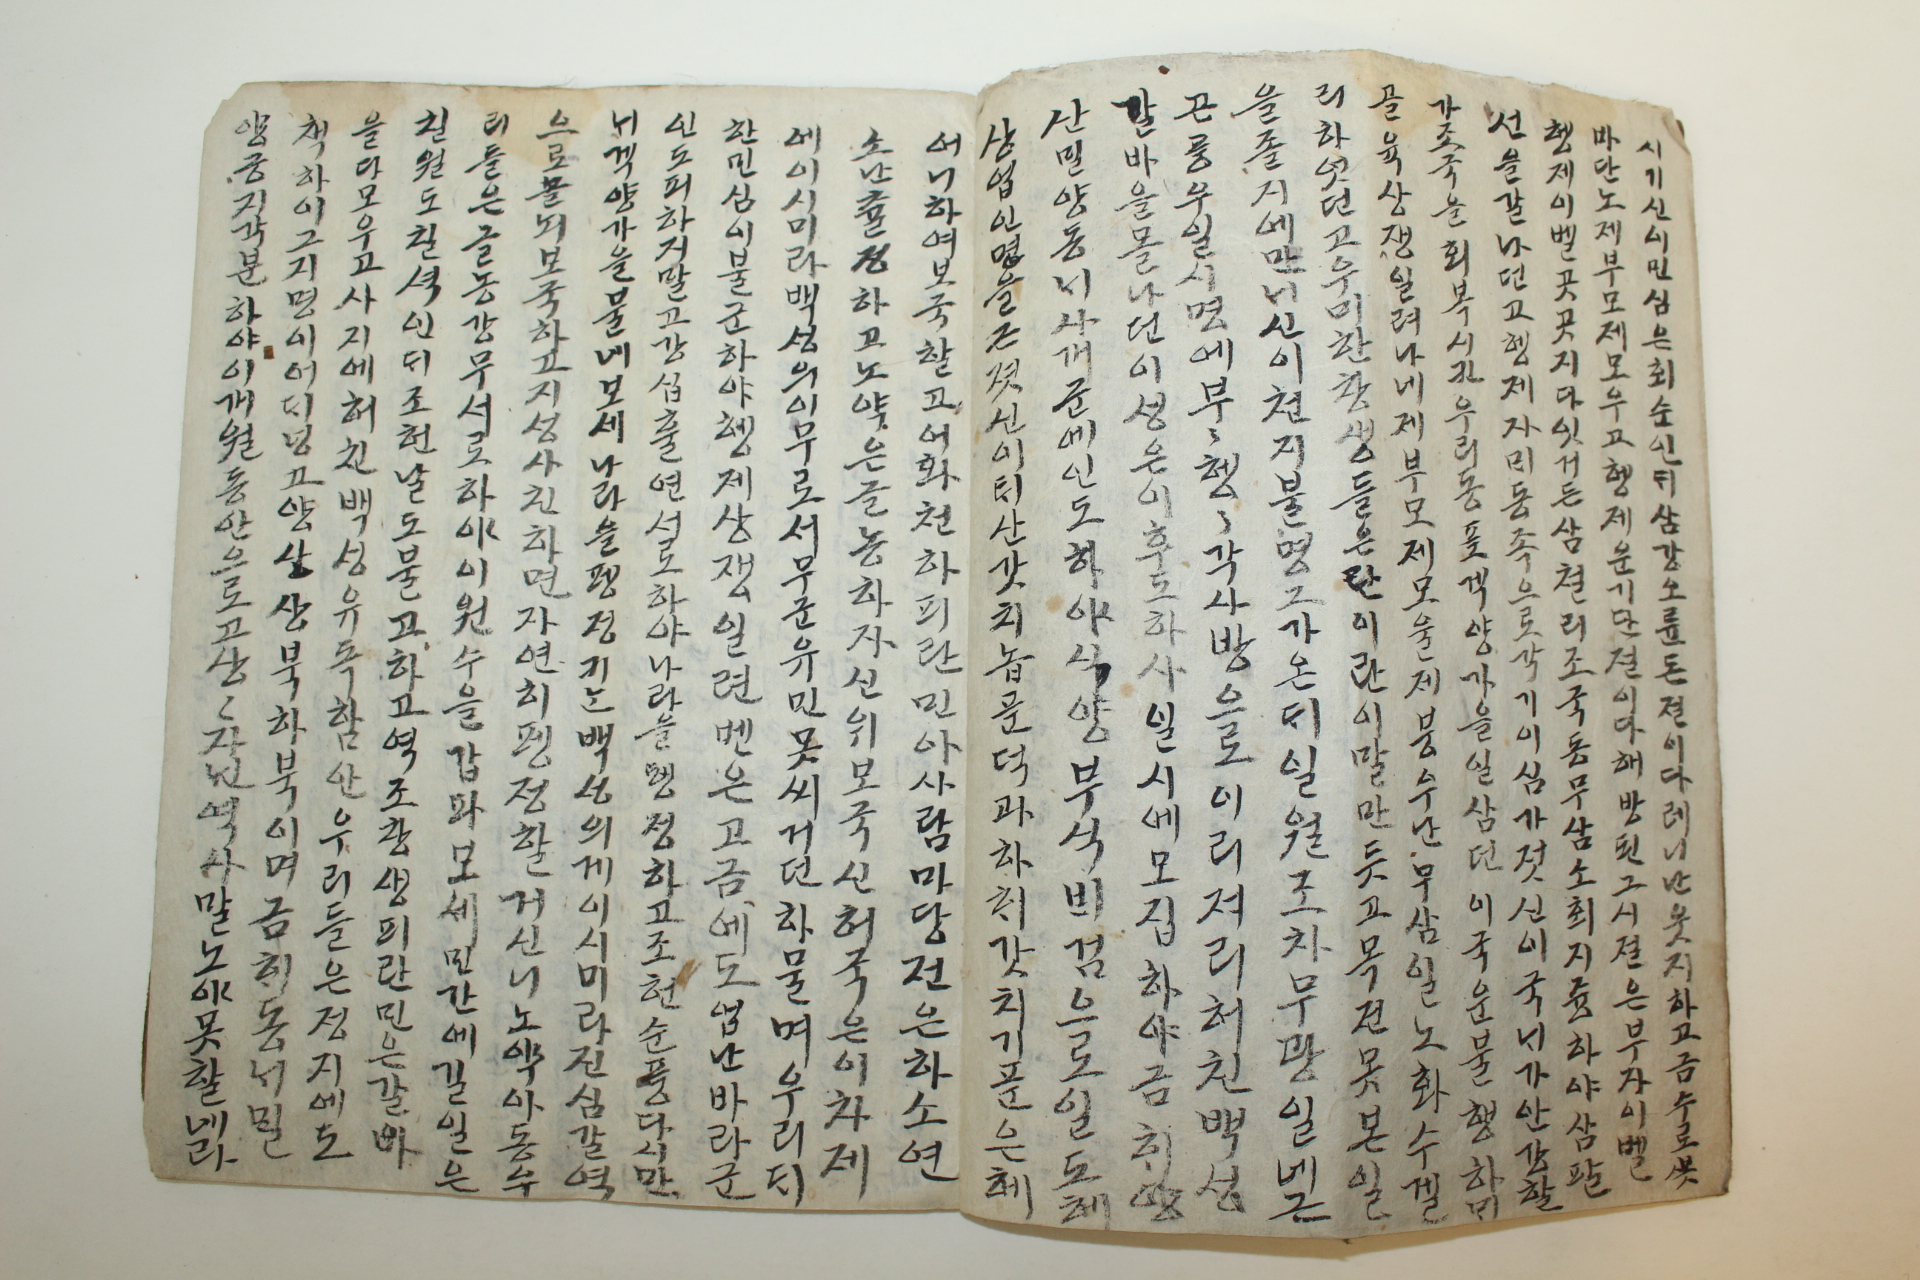 시기신이민심은회순인듸삼강오륜돈졀이다레니난웃지하고금수로붓
마단노제부모제모우고형제운기단졀이다해방된그시졀은부자이벨
행제이벨곳곳지다잇거든삼쳘리조국동무삼소회지즁하야삼팔
선을갈나던고행제자미동족으로각기이심가젓신이국늬가안강할
가조국을회복시긴우리동포겍양가을일삼던이국운불행하미
골육상쟁일려나네제부모제모을제붕우난무삼일노화수겔
리하엿던고우미한창생들은란이란이말만듯고목견못본일
을졸지에만늬신이쳔지불명그가온듸일월조차무광일네근
근풍우일시명에부〻형〻각사방으로이리져리허친백성
갈바을몰나던이생은이후도하사일시에모집하야금희양
산밀양동늬사개군에인도하야식양부석비검으로일도헤
상업인명을근젓신이듸산갓치놉푼덕과하히갓치기푼은헤
어니하여보국할고어화천하피란민아사람마당전은하소연
소난츌정하고노약은글농하자신위모국신허국은이차제
에이시미라백성의이무로서무군유민못씨거던하물며우리듸
한민심이불군하야형제상쟁일련벤은고금에도업난바라군
인도피하지말고강십츌연서로하야나라을펭정하고조헌순풍다시만
늬겍양가을불네보세나라을펭정키난백성의게이시미라진심갈역
으로물늬보국하고지성사친하면자연히펭정할거신니노약아동수
듸들은글농강무서로하야이원수을갑파보세민간에길일은
칠월도칠셕인듸조헌날도불고하고역조창생피란민은갈바
을다모우고사지에허친백성유독함안우리들은정지에도
책하이그지명이어듸넝고양상상북하북이며금히동늬밀
양궁지각분하야이개월동안으로고상〻자닌역사말노야못할네라